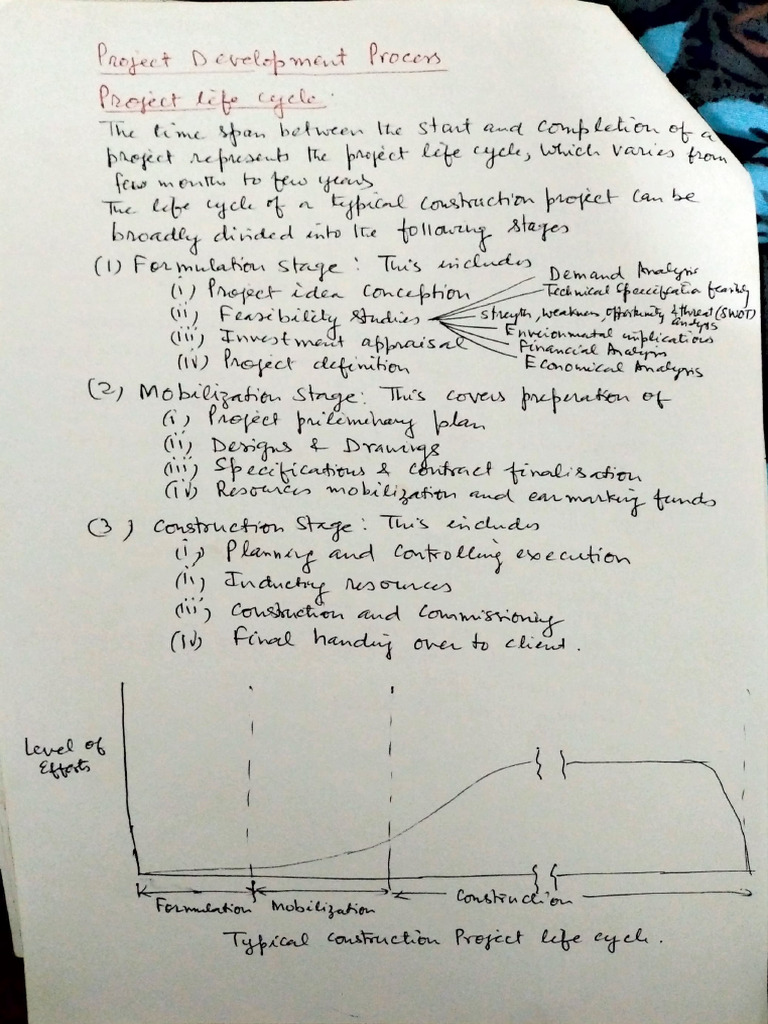 Project Development Process
Project life cycle.
The time span between the start and completion of a
project represents the project life cycle, which varies from
few months to few years
The life cycle of a typical construction project can be
broadly divided into the following stages
(1) Formulation stage: This includes
(i) Project idea conception
(ii) Feasibility studies
(iii) Investment appraisal
(iv) Project definition
Demand Analysis
Technical Specification feasibility
strength, weakness, opportunity & threat (SWOT)
analysis
Environmental implications
Financial Analysis
Economical Analysis
(2) Mobilization stage: This covers preperation of
(i) Project preliminary plan
(ii) Designs & Drawings
(iii) Specifications & contract finalisation
(iv) Resources mobilization and earmarking funds
(3) Construction stage: This includes
(i) Planning and controlling execution
(ii) Inducting resources
(iii) Construction and commissioning
(iv) Final handing over to client.
Level of
Efforts
Formulation Mobilization Construction
Typical construction Project life cycle.